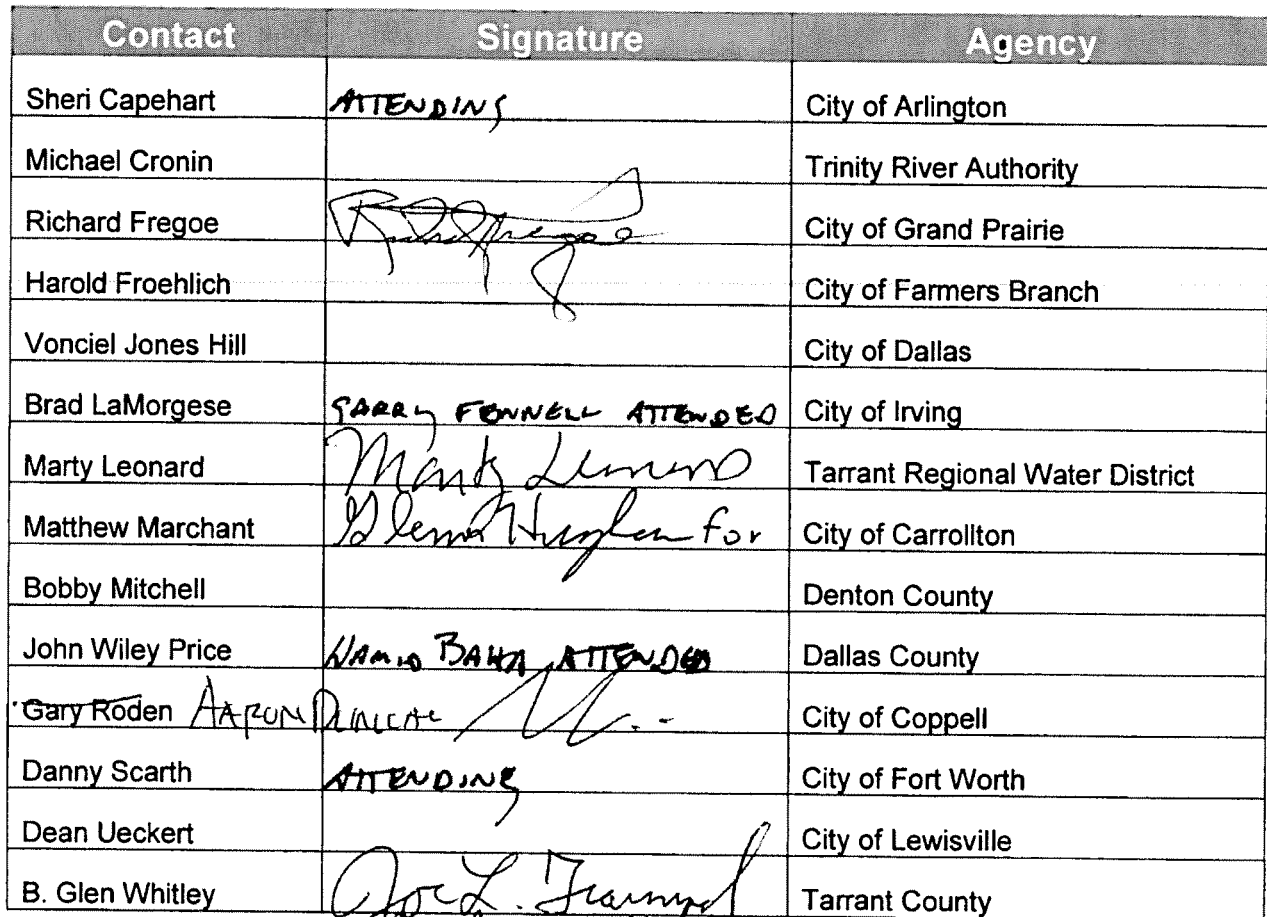 Contact Signature Agency
Sheri Capehart ATTENDING City of Arlington
Michael Cronin Trinity River Authority
Richard Fregoe Richard Fregoe City of Grand Prairie
Harold Froehlich City of Farmers Branch
Vonciel Jones Hill City of Dallas
Brad LaMorgese GARRY FENNELL ATTENDED City of Irving
Marty Leonard Marty Leonard Tarrant Regional Water District
Matthew Marchant Glenn Hughes for City of Carrollton
Bobby Mitchell Denton County
John Wiley Price HAMID BAHA ATTENDED Dallas County
Gary Roden AARON DUNCAN City of Coppell
Danny Scarth ATTENDING City of Fort Worth
Dean Ueckert City of Lewisville
B. Glen Whitley Joe L. Tarrant County